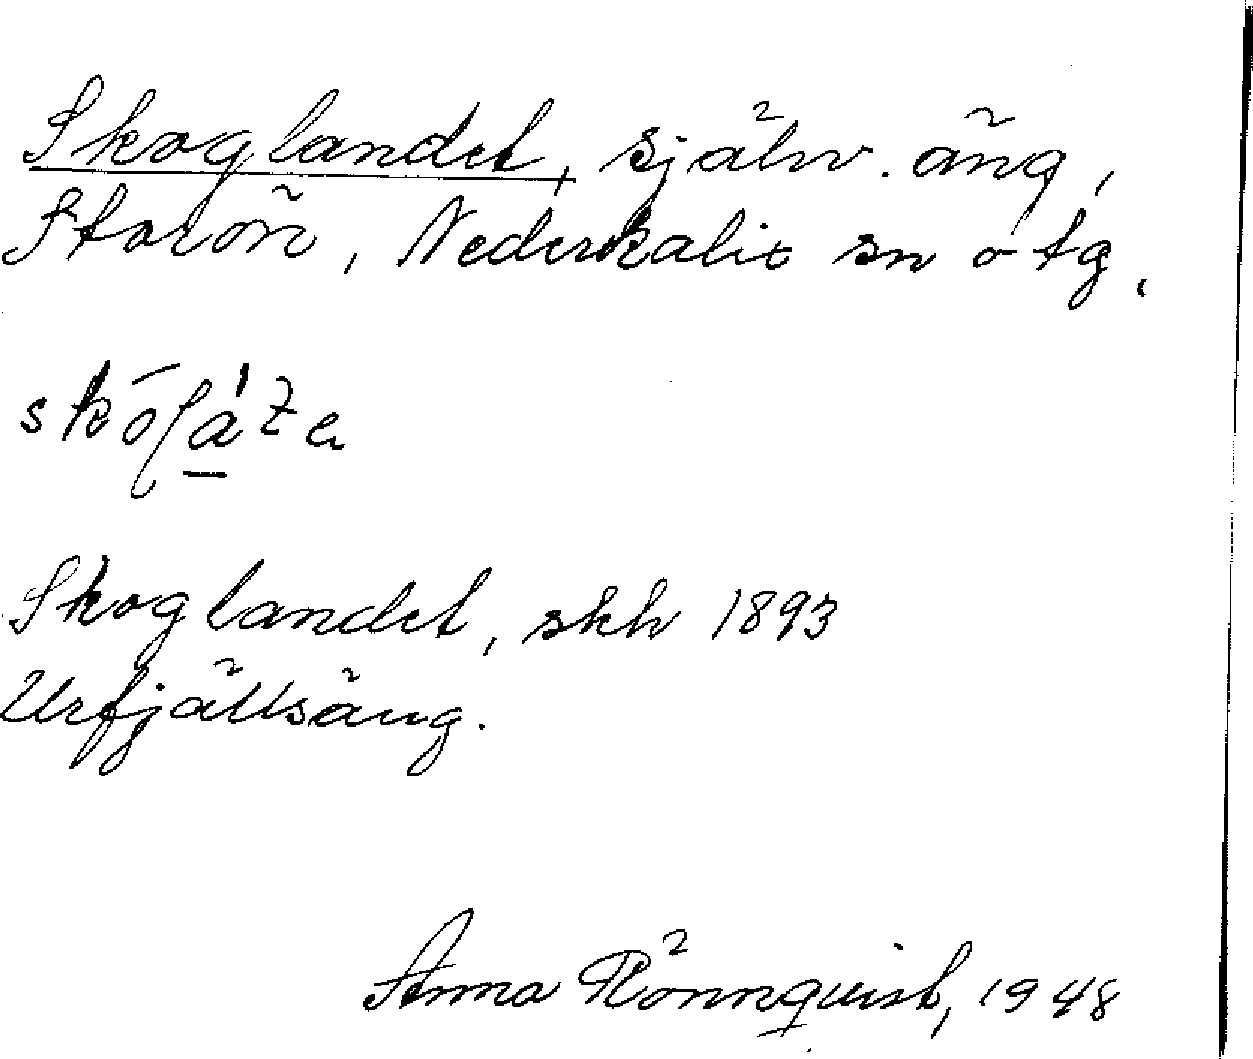 Skoglandet, självv. äng,
Storön, Nederkalix sn o tg.
Skoglandet, skh 1893
Urfjällsäng.
Anna Rönnquist, 1948